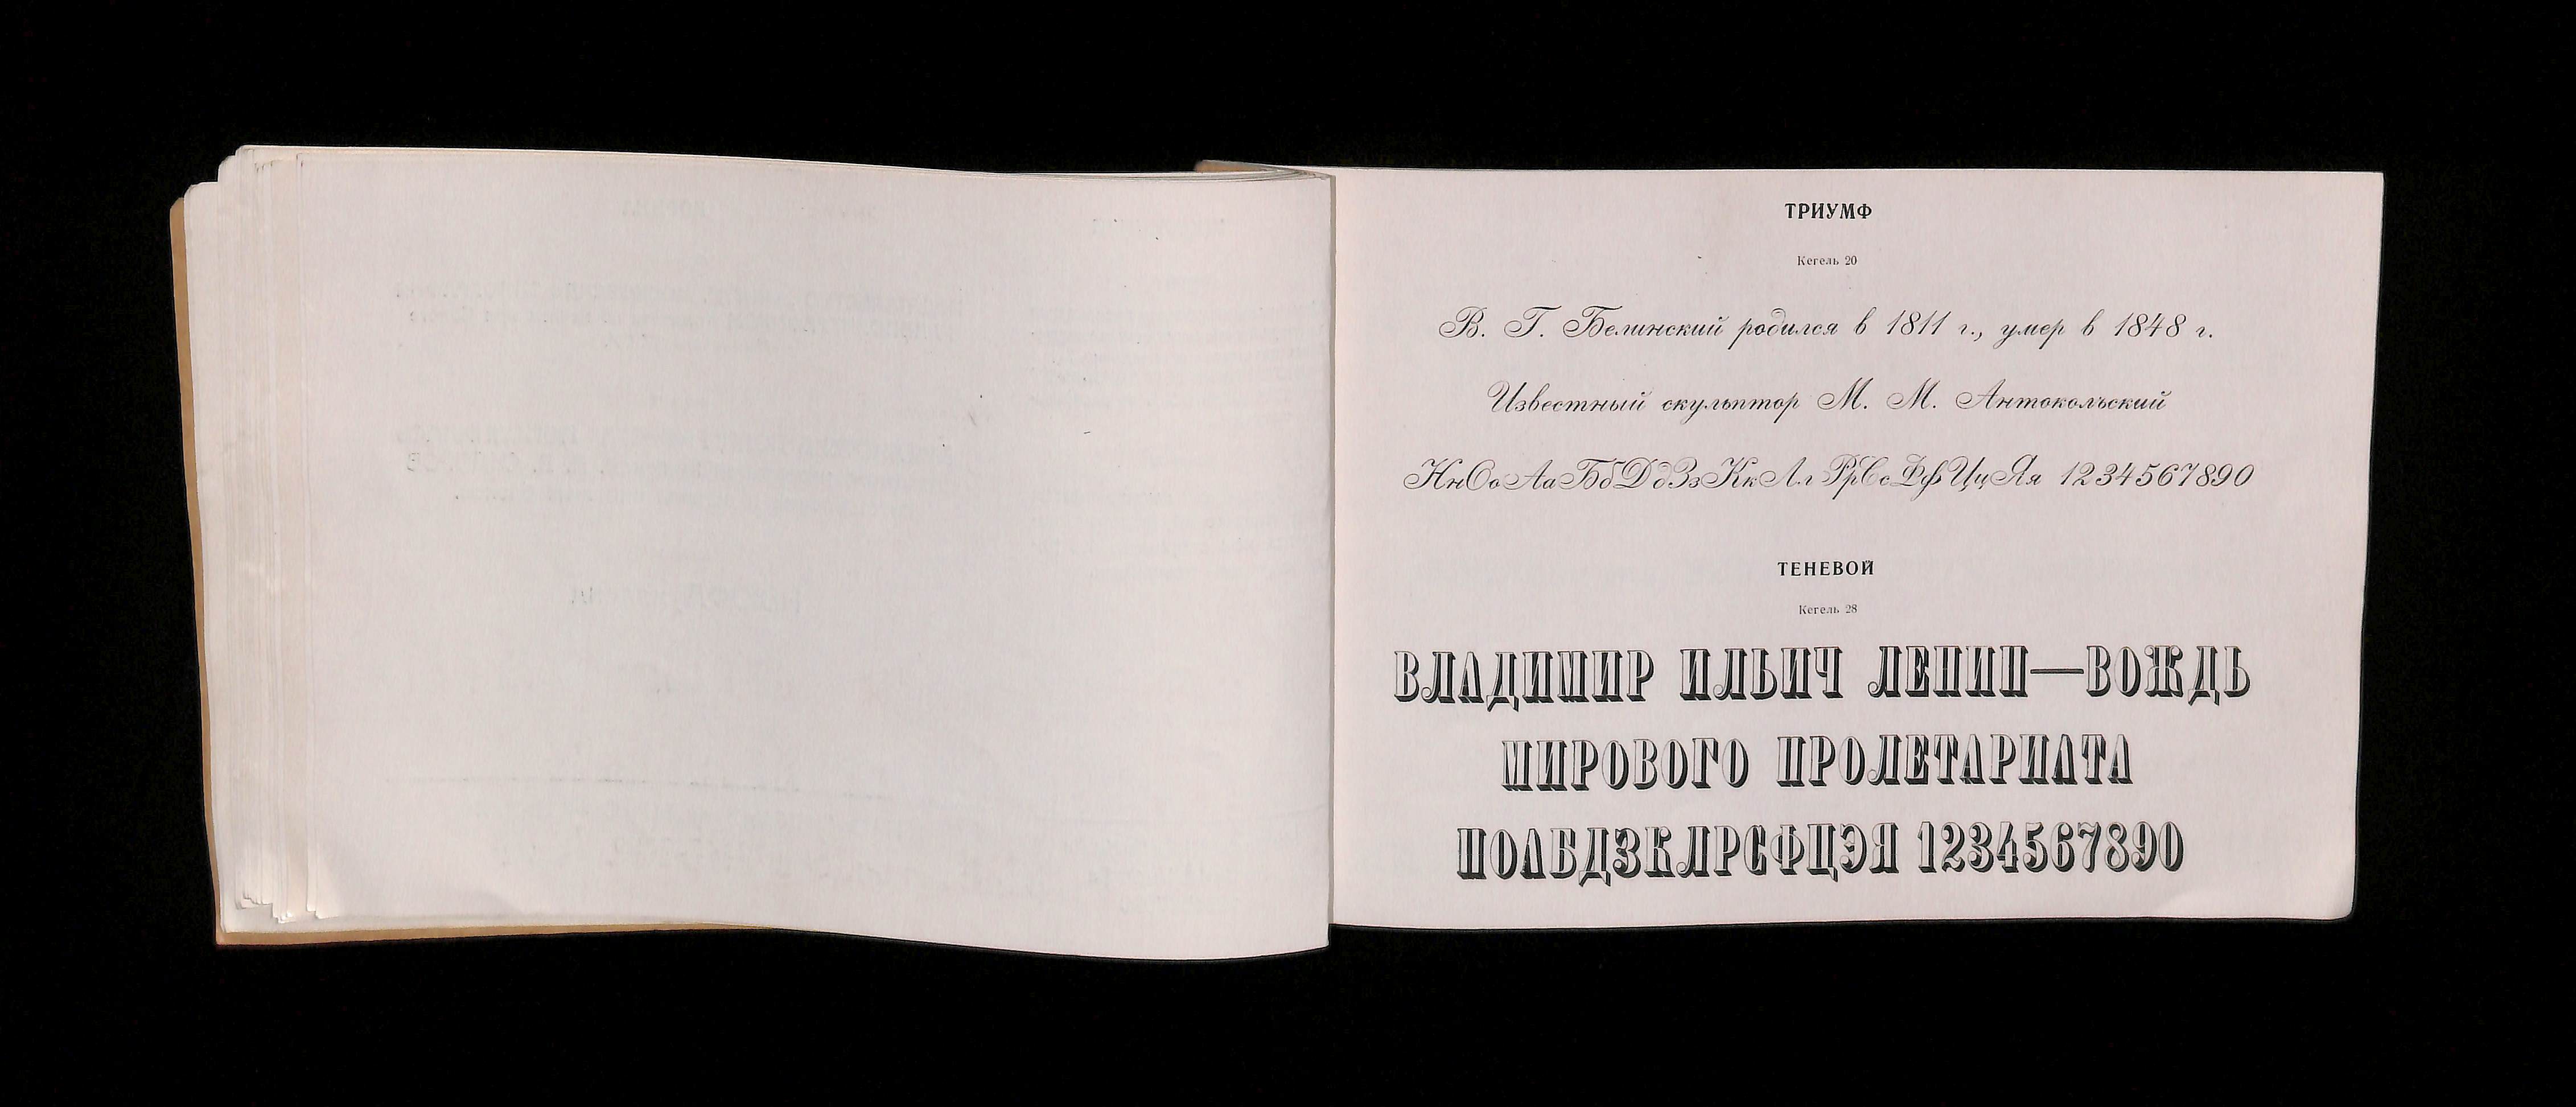 ТРИУМФ
Кегель 20
В. Г. Белинский родился в 1811 г., умер в 1848 г.
Известный скульптор М. М. Антокольский
НнОоАаБбДдЗзКкЛлРрСсФфЦцЯя 1234567890
ТЕНЕВОЙ
Кегель 28
ВЛАДИМИР ИЛЬИЧ ЛЕНИН—ВОЖДЬ
МИРОВОГО ПРОЛЕТАРИАТА
НОАБДЗКЛРСФЦЭЯ 1234567890